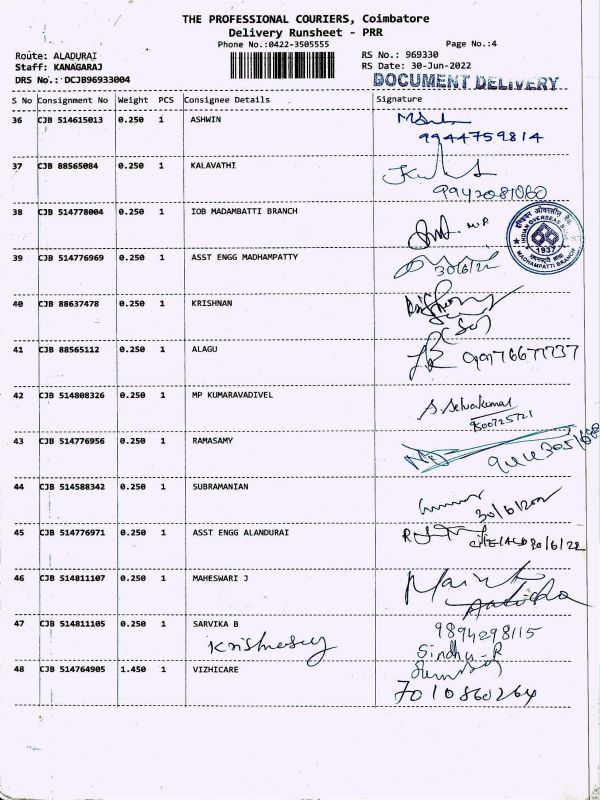 THE PROFESSIONAL COURIERS, Coimbatore
Delivery Runsheet - PRR
Phone No.:0422-3505555
Page No.:4
Route: ALADURAI
RS No.: 969330
Staff: KANAGARAJ
RS Date: 30-Jun-2022
DRS No.: DCJB96933004
DOCUMENT DELIVERY
S No Consignment No Weight PCS Consignee Details Signature
36 CJB 514615013 0.250 1 ASHWIN
9944759814
37 CJB 88565084 0.250 1 KALAVATHI
9942081060
38 CJB 514778004 0.250 1 IOB MADAMBATTI BRANCH
INDIAN OVERSEAS BANK
1937
MADHAMPATTI BRANCH
39 CJB 514776969 0.250 1 ASST ENGG MADHAMPATTY
30/6/22
40 CJB 88637478 0.250 1 KRISHNAN
41 CJB 88565112 0.250 1 ALAGU
42 CJB 514808326 0.250 1 MP KUMARAVADIVEL
S. Selvakumar
9500725721
43 CJB 514776956 0.250 1 RAMASAMY
44 CJB 514588342 0.250 1 SUBRAMANIAN
45 CJB 514776971 0.250 1 ASST ENGG ALANDURAI
30/6/22
46 CJB 514811107 0.250 1 MAHESWARI J
47 CJB 514811105 0.250 1 SARVIKA B
9894298115
Sindhu-R
48 CJB 514764905 1.450 1 VIZHICARE
7010860264